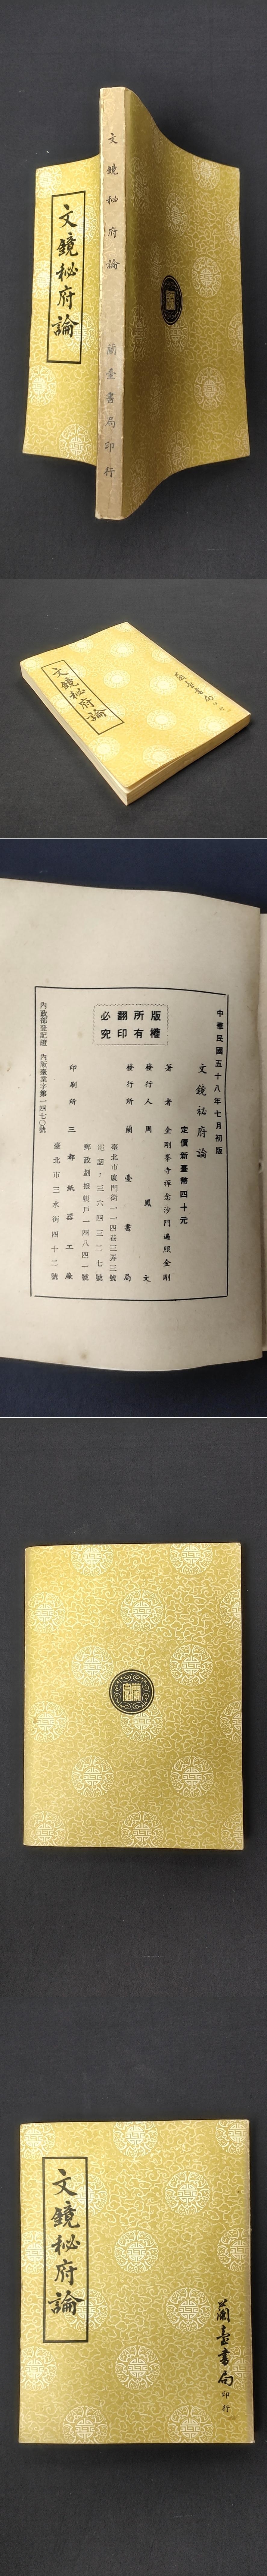 文鏡秘府論
文鏡秘府論
蘭臺書局印行
文鏡秘府論
蘭台書局
印行
版權所有翻印必究
中華民國五十八年七月初版
文鏡祕府論
定價新臺幣四十元
著者 金剛峯寺禪念沙門遍照金剛
發行人 周鳳文
發行所 蘭臺書局
臺北市廈門街一一四巷三弄三號
電話：三六四三二七號
郵政劃撥帳戶一四八四一號
印刷所 三郵紙器工廠
臺北市三水街四十二號
內政部登記證 內版臺業字第一四七〇號
文鏡秘府論
蘭臺書局
印行